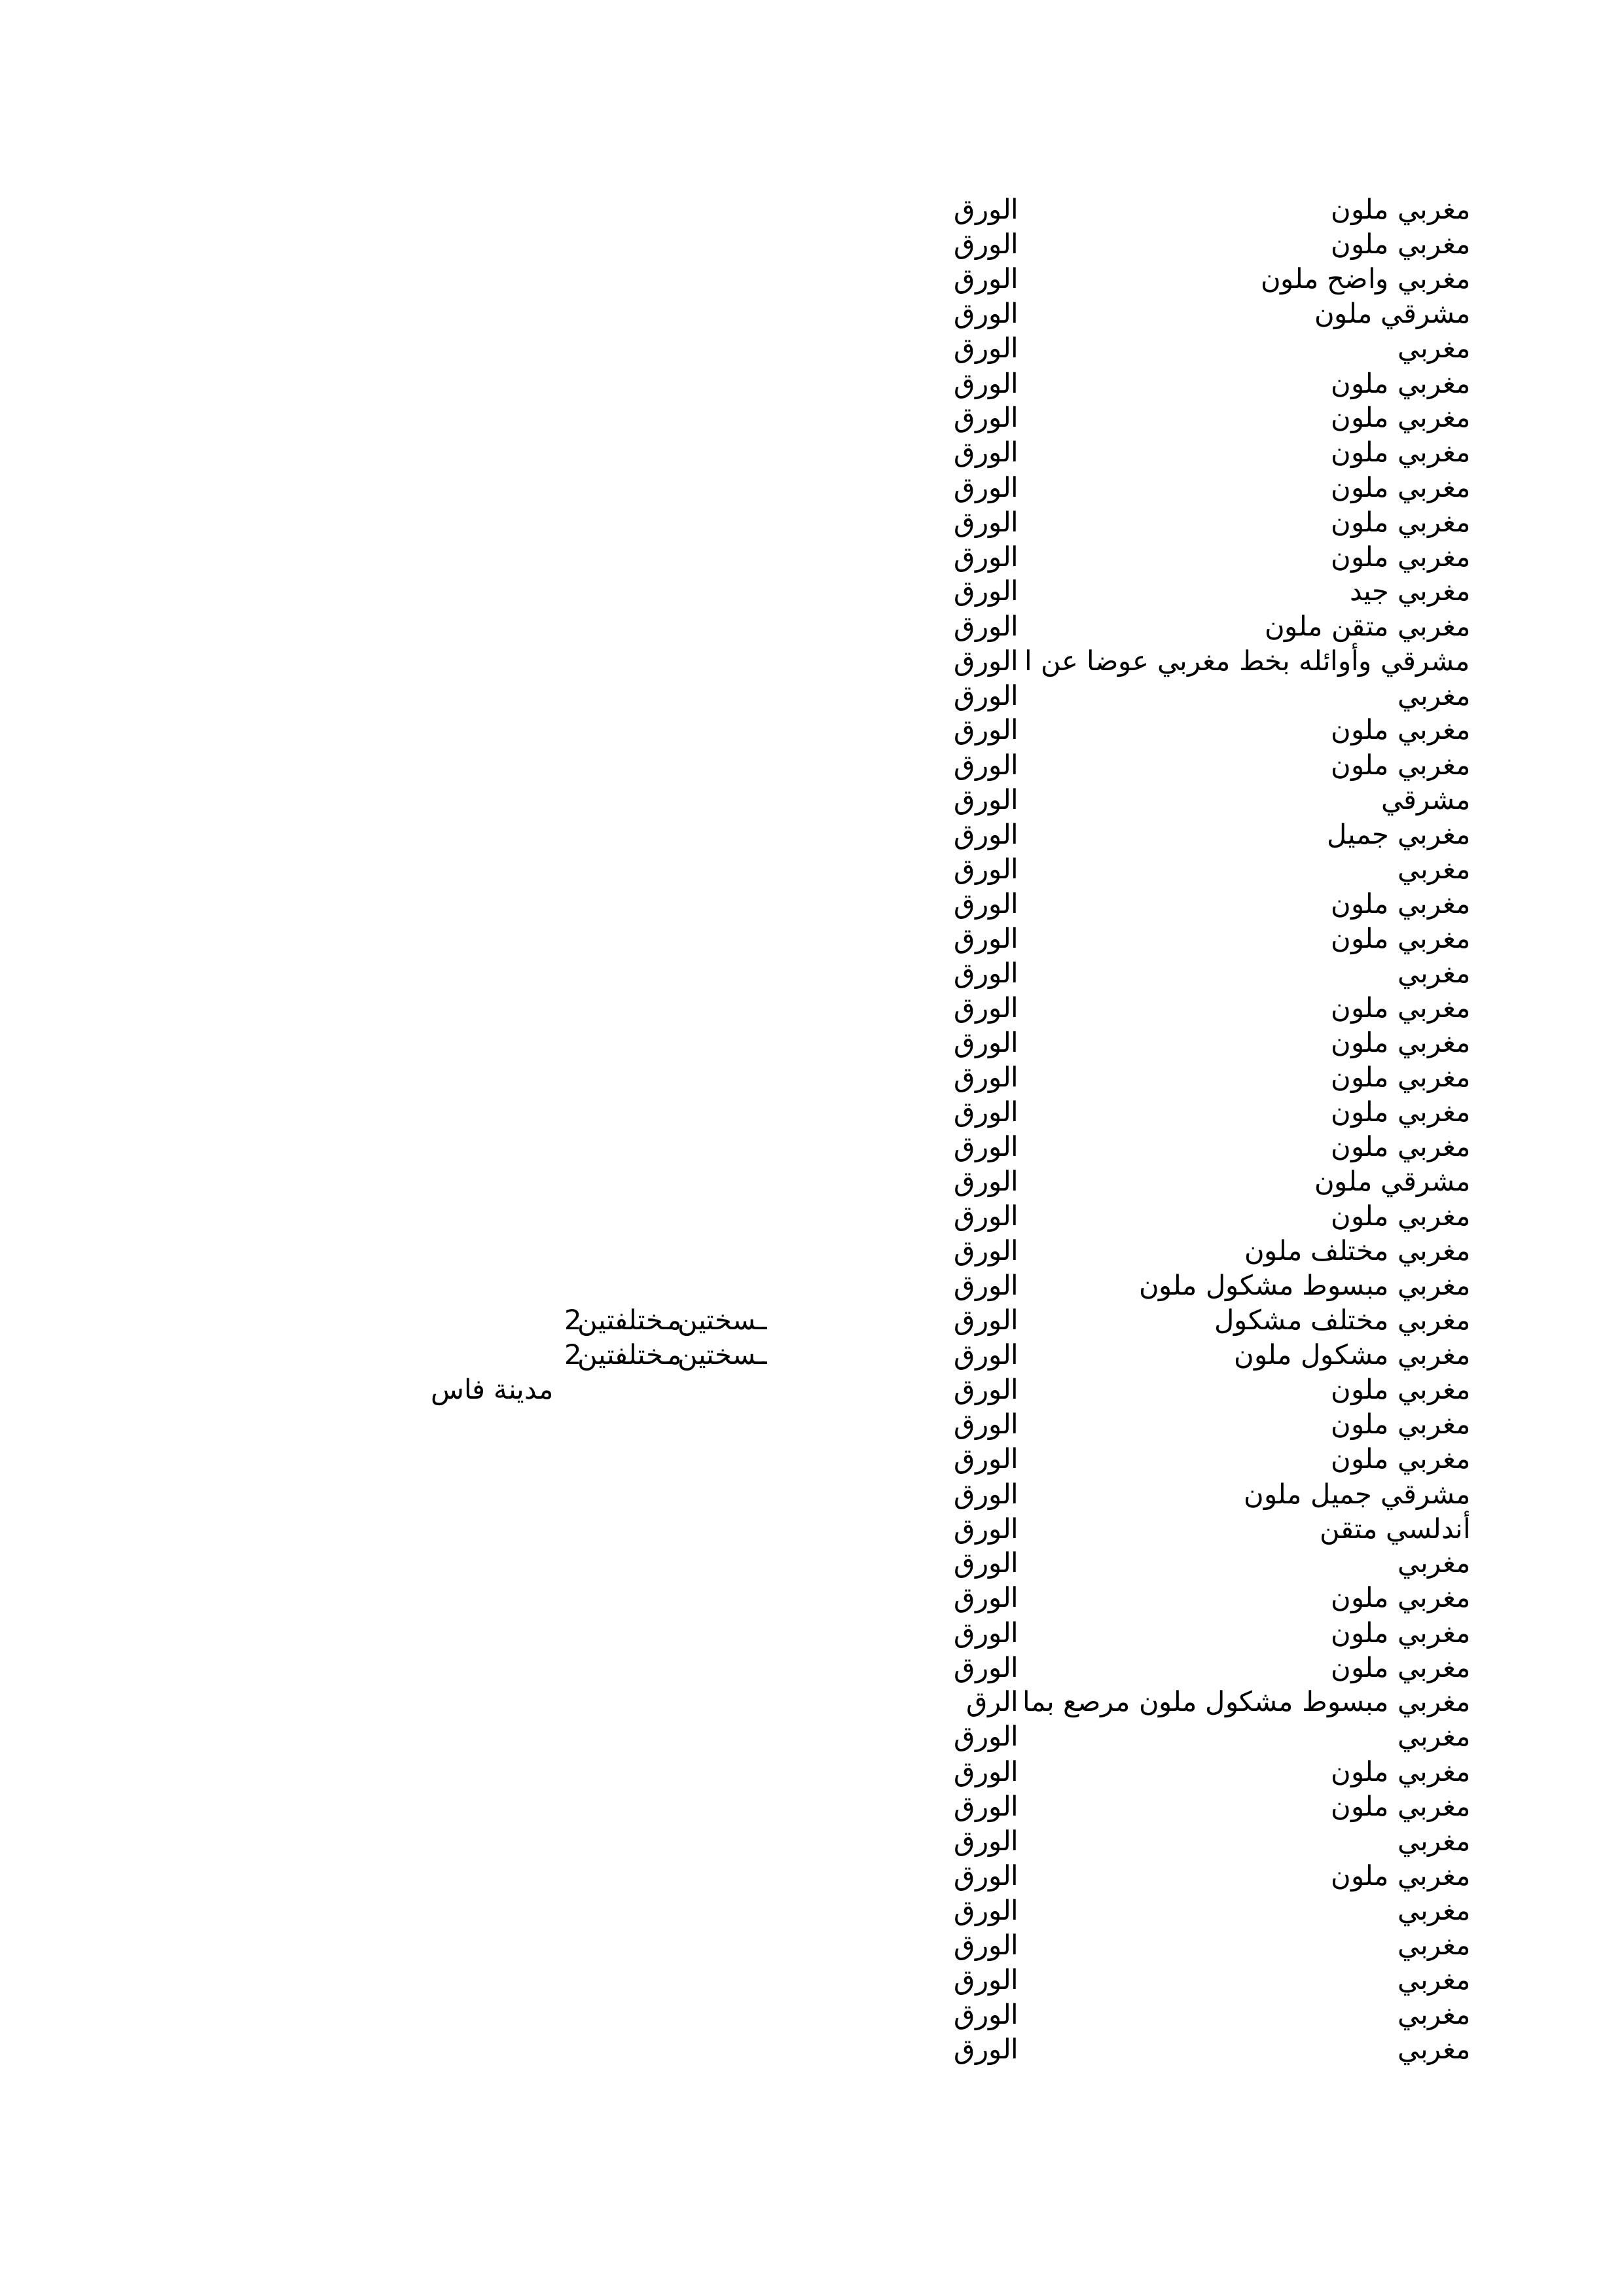 مغربي ملون الورق
مغربي ملون الورق
مغربي واضح ملون الورق
مشرقي ملون الورق
مغربي الورق
مغربي ملون الورق
مغربي ملون الورق
مغربي ملون الورق
مغربي ملون الورق
مغربي ملون الورق
مغربي ملون الورق
مغربي جيد الورق
مغربي متقن ملون الورق
مشرقي وأوائله بخط مغربي عوضا عن ا الورق
مغربي الورق
مغربي ملون الورق
مغربي ملون الورق
مشرقي الورق
مغربي جميل الورق
مغربي الورق
مغربي ملون الورق
مغربي ملون الورق
مغربي الورق
مغربي ملون الورق
مغربي ملون الورق
مغربي ملون الورق
مغربي ملون الورق
مغربي ملون الورق
مشرقي ملون الورق
مغربي ملون الورق
مغربي مختلف ملون الورق
مغربي مبسوط مشكول ملون الورق
مغربي مختلف مشكول الورق ـسختين مختلفتين 2
مغربي مشكول ملون الورق ـسختين مختلفتين 2
مغربي ملون الورق مدينة فاس
مغربي ملون الورق
مغربي ملون الورق
مشرقي جميل ملون الورق
أندلسي متقن الورق
مغربي الورق
مغربي ملون الورق
مغربي ملون الورق
مغربي ملون الورق
مغربي مبسوط مشكول ملون مرصع بما الرق
مغربي الورق
مغربي ملون الورق
مغربي ملون الورق
مغربي الورق
مغربي ملون الورق
مغربي الورق
مغربي الورق
مغربي الورق
مغربي الورق
مغربي الورق